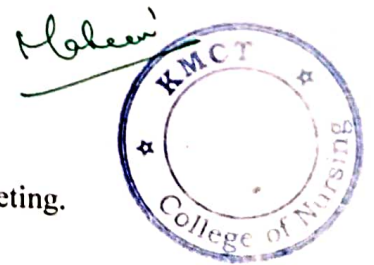 KMCT
College of Nursing
eting.